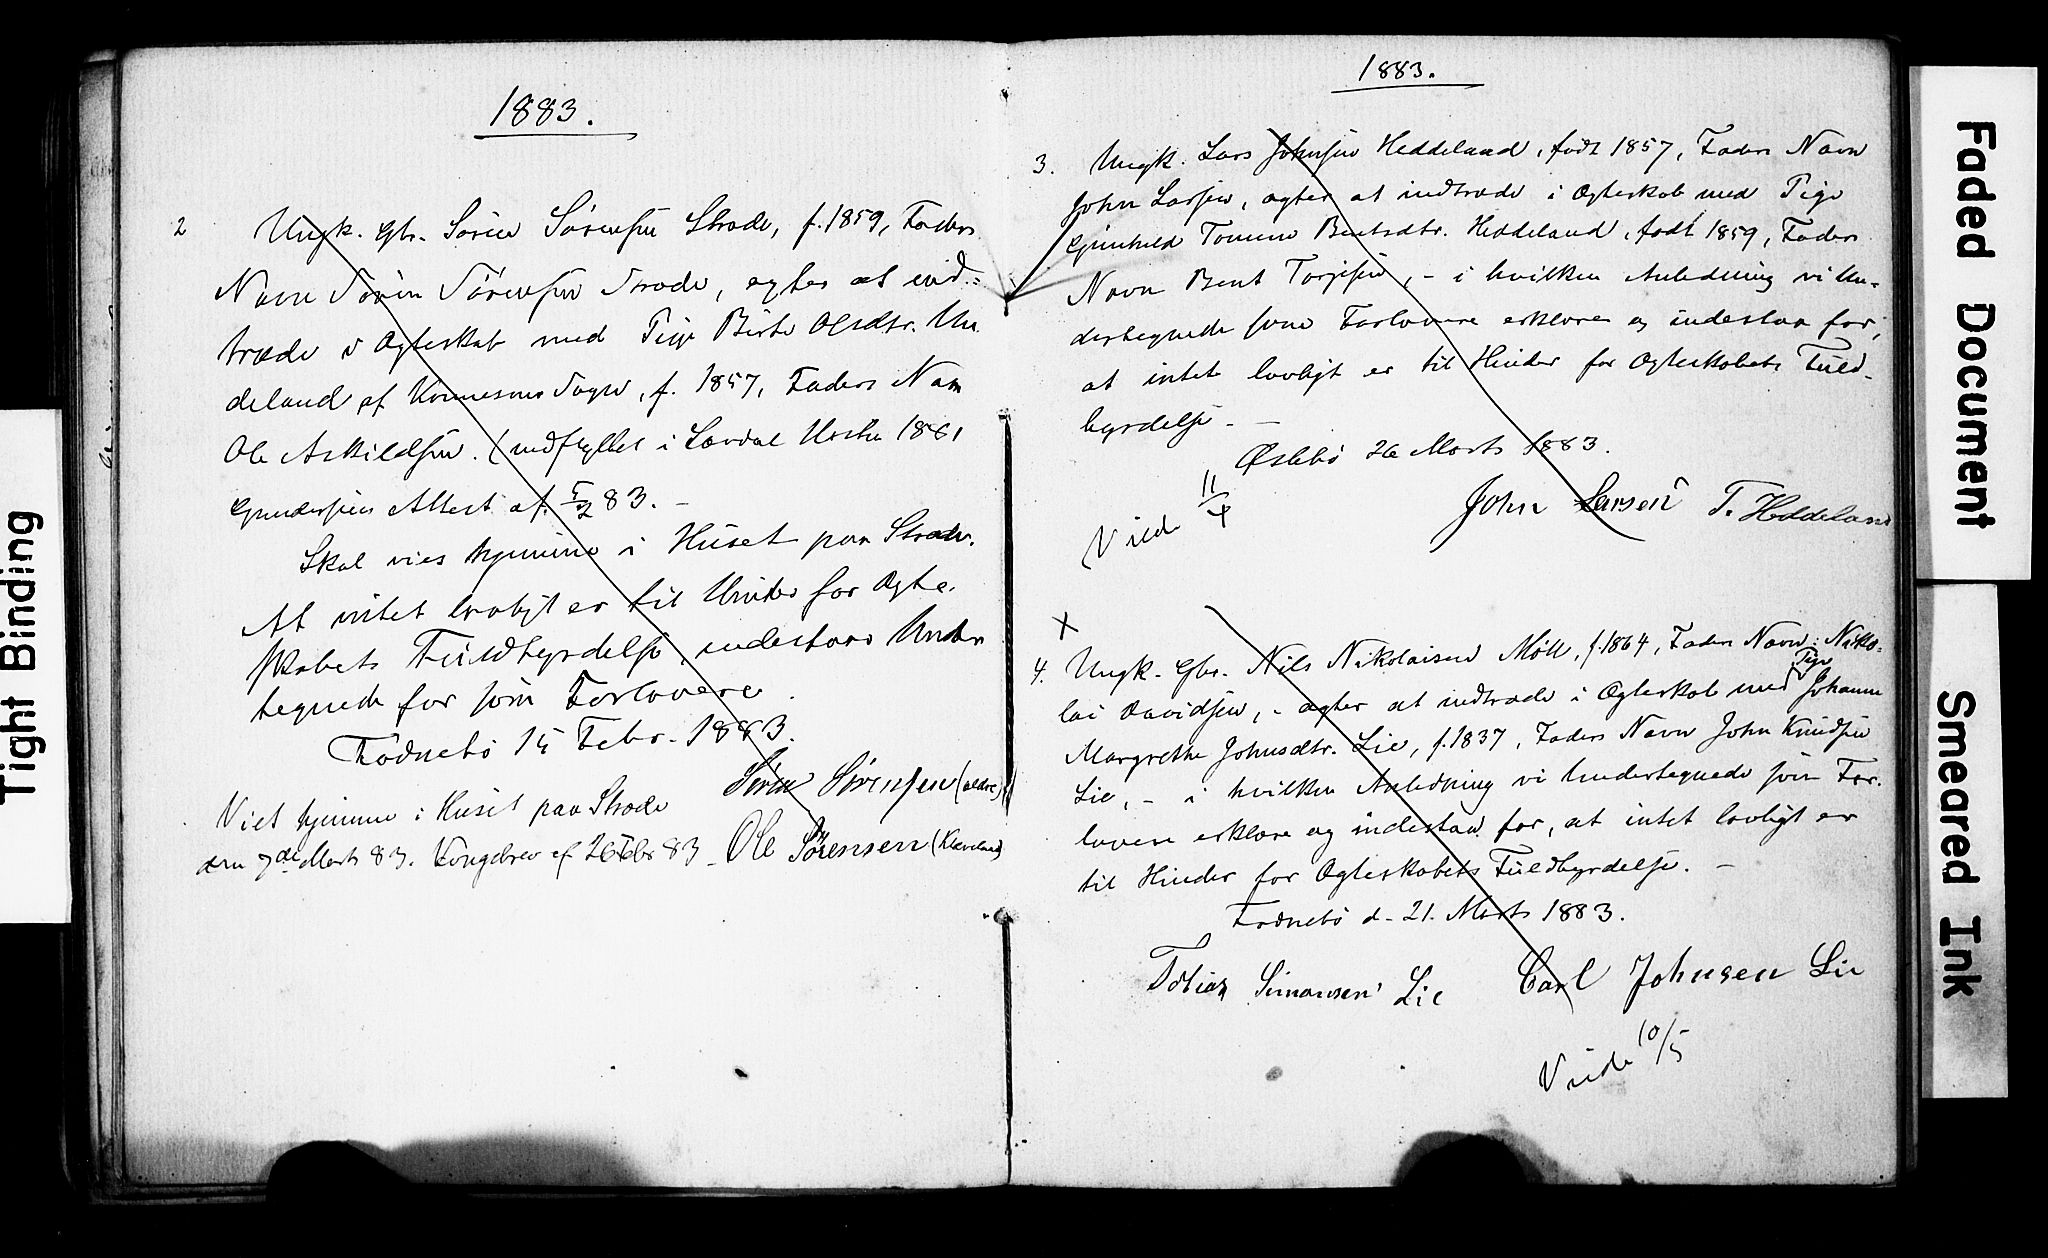 1883.
2 Ungk. Gbr. Sören Sörensen Strode, f. 1859, Faders
Navn Sören Sörensen Strode, agter at ind-
træde i Ægteskab med Pige Birte Olsdtr. Un
deland af Sogn, f. 1857, Faders Navn
Ole Askildsen. (indflyttet i Høsten 1881
Gundersens Attest af 5/2 83. -
Skal vies hjemme i Huset paa Strode.
At intet lovligt er til Hinder for Ægte-
skabets Fuldbyrdelse, indestaar Under
tegnede for som Forlovere.
Fodnebö 15 Febr. 1883.
Sören Sörensen (ældre)
Viet hjemme i Huset paa Strode
den 7de Marts 83. Kongebrev af 26 Febr 83. Ole Sörensen
1883.
3. Ungk. Lars Johnsen Heddeland, født 1857, Faders Navn
John Larsen, agter at indtræde i Ægteskab med Pige
Gunhild Tomine Bentsdtr. Heddeland, født 1859, Faders
Navn Bent Torjesen, - i hvilken Anledning vi Un-
dertegnede som Forlovere erklære og indestaa for,
at intet lovligt er til Hinder for Ægteskabets Fuld-
byrdelse. -
Øslebö 26 Marts 1883.
John Larsen T. Heddeland
Viede 11/4
X
4. Ungk. Gbr. Nils Nikolaisen Möll, f. 1864, Faders Navn: Niko-
lai Davidsen, - agter at indtræde i Ægteskab med Pige Johanne
Margrethe Johnsdtr. Lie, f. 1837, Faders Navn John Knudsen
Lie, - i hvilken Anledning vi Undertegnede som For-
lovere erklære og indestaa for, at intet lovligt er
til Hinder for Ægteskabets Fuldbyrdelse. -
Fodnebö d. 21. Marts 1883.
Tobias Simonsen Lie Carl Johnsen Lie
Viede 10/5
Tight Binding
Faded Document
Smeared Ink